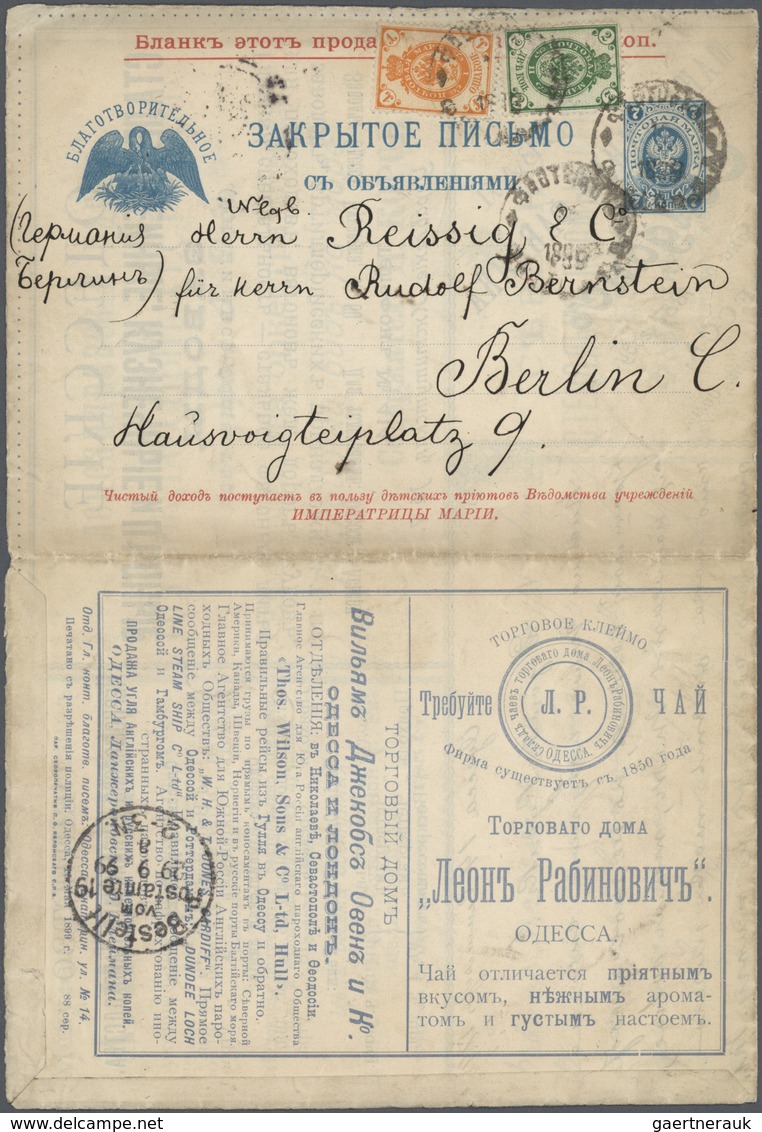 Бланкъ этотъ прода
оп.
БЛАГОТВОРИТЕЛЬНОЕ
ЗАКРЫТОЕ ПИСЬМО
СЪ ОБЪЯВЛЕНІЯМИ
7 ПОЧТОВАЯ МАРКА 7
(Германія Herrn Reissig & Co
Берлинъ) für Herrn Rudolf Bernstein
Berlin C.
Hausvoigteiplatz 9.
Чистый доходъ поступаетъ въ пользу дѣтскихъ пріютовъ Вѣдомства учрежденій
ИМПЕРАТРИЦЫ МАРІИ.
ТОРГОВОЕ КЛЕЙМО
Требуйте Л. Р. ЧАЙ
ОДЕССА.
Фирма существуетъ съ 1850 года
Торговаго дома
„Леонъ Рабиновичъ".
ОДЕССА.
Чай отличается пріятнымъ
вкусомъ, нѣжнымъ арома-
томъ и густымъ настоемъ.
ТОРГОВЫЙ ДОМЪ
Вильямъ Джекобсъ Овенъ и Ко.
ОДЕССА И ЛОНДОНЪ.
ОТДѢЛЕНІЯ: въ Николаевѣ, Севастополѣ и Ѳеодосіи.
Главное Агентство для Юга Россіи англійскаго пароходнаго Общества
„Thos. Wilson, Sons & Co L-td, Hull".
Правильные рейсы изъ Гулля въ Одессу и обратно.
Принимаются грузы по прямымъ коносаментамъ въ порты: Сѣверной
Америки, Канады, Швеціи, Норвегіи и въ русскіе порты Балтійскаго моря.
Главное Агентство для Южной Россіи Англійскихъ паро-
ходныхъ Обществъ: „W. H. &
CARDIFF". Прямое
сообщеніе между Одессой и Роттердамомъ. „DUNDEE LOCH
LINE STEAM SHIP Co L-td".
сообщеніе между
Одессой и Гамбургомъ. Агентство по
страхованію ино-
странныхъ
ПРОДАЖА УГЛЯ Англійскихъ и Русскихъ
копей.
ОДЕССА, Ланжероновская
Отд. Гл. конт. благотв. писемъ, Одесса,
ул. № 14.
Печатано съ разрѣшенія полиціи. Одесса,
1899 г.
88 сер.
Bestellt
vom
Postamte 19
99